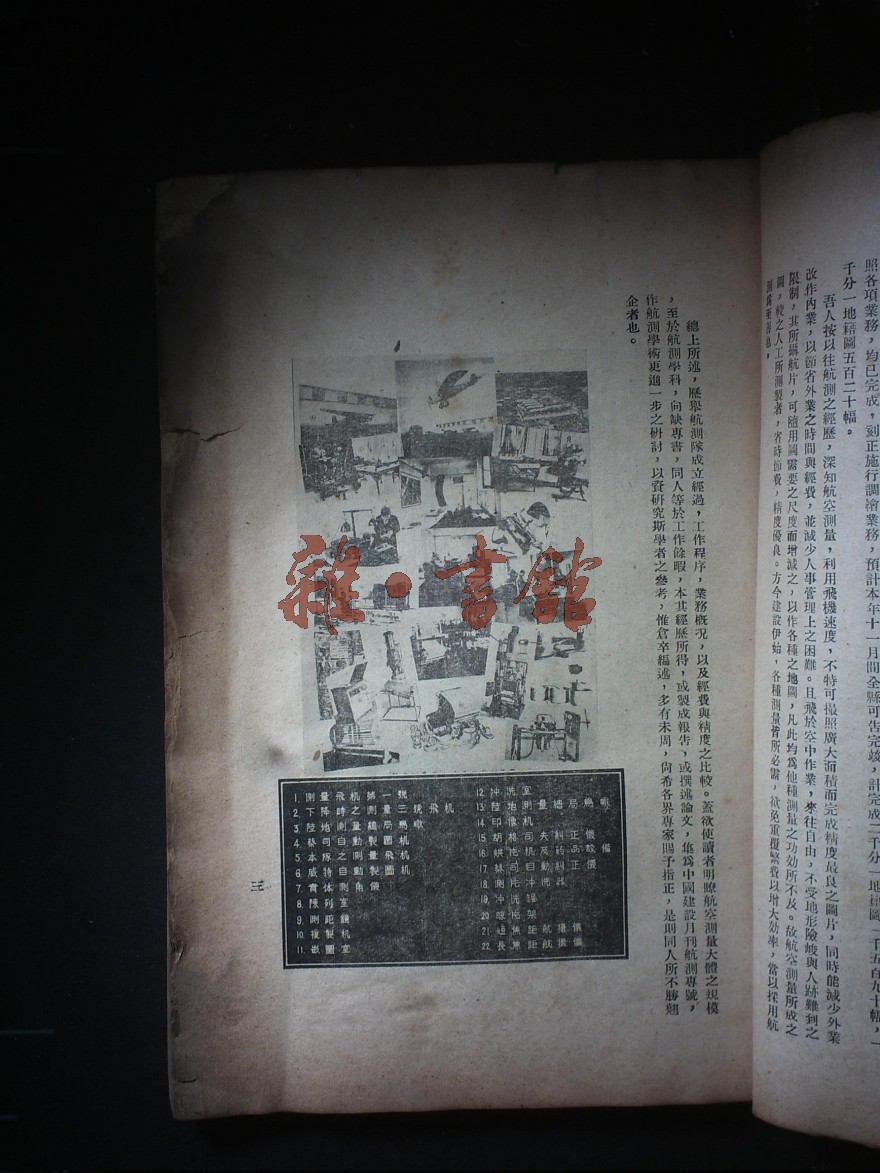 照各項業務，均已完成，刻正施行調繪業務，預計本年十一月間全縣可告完竣，計完成二千分一地籍圖一千五百九十幅，一
千分一地籍圖五百二十幅。
吾人按以往航測之經歷，深知航空測量，利用飛機速度，不特可撮照廣大面積而完成精度最良之圖片，同時能減少外業
改作內業，以節省外業之時間與經費，並減少人事管理上之困難。且飛於空中作業，來往自由，不受地形險峻與人跡難到之
限制，其所攝航片，可隨用圖需要之尺度而增減之，以作各種之地圖，凡此均爲他種測量之功効所不及。故航空測量所成之
圖，較之人工所測製者，省時節費，精度優良。方今建設伊始，各種測量皆所必需，欲免重複繁費以增大効率，當以採用航
測爲至善也。
總上所述，歷舉航測隊成立經過，工作程序，業務概況，以及經費與精度之比較。蓋欲使讀者明瞭航空測量大體之規模
，至於航測學科，向缺專書，同人等於工作餘暇，本其經歷所得，或製成報告，或撰述論文，集爲中國建設月刊航測專號，
作航測學術更進一步之研討，以資研究斯學者之參考，惟倉卒編述，多有未周，尙希各界專家賜予指正，是則同人所不勝翹
企者也。
雜·書館
1. 測量飛機第一
2. 下降時之測量三
3. 陸地測量局
4. 蔡司自動
5. 本隊之測製圖
6. 威特自動製圖
7. 實體測
8. 陳列室
9. 測距
10. 複製
11. 嵌圖室
12. 沖洗室
13.
14. 印像机
15.
16.
17.
18. 測
19. 沖洗
20.
21. 短焦距航攝儀
22. 長焦距航攝儀
三